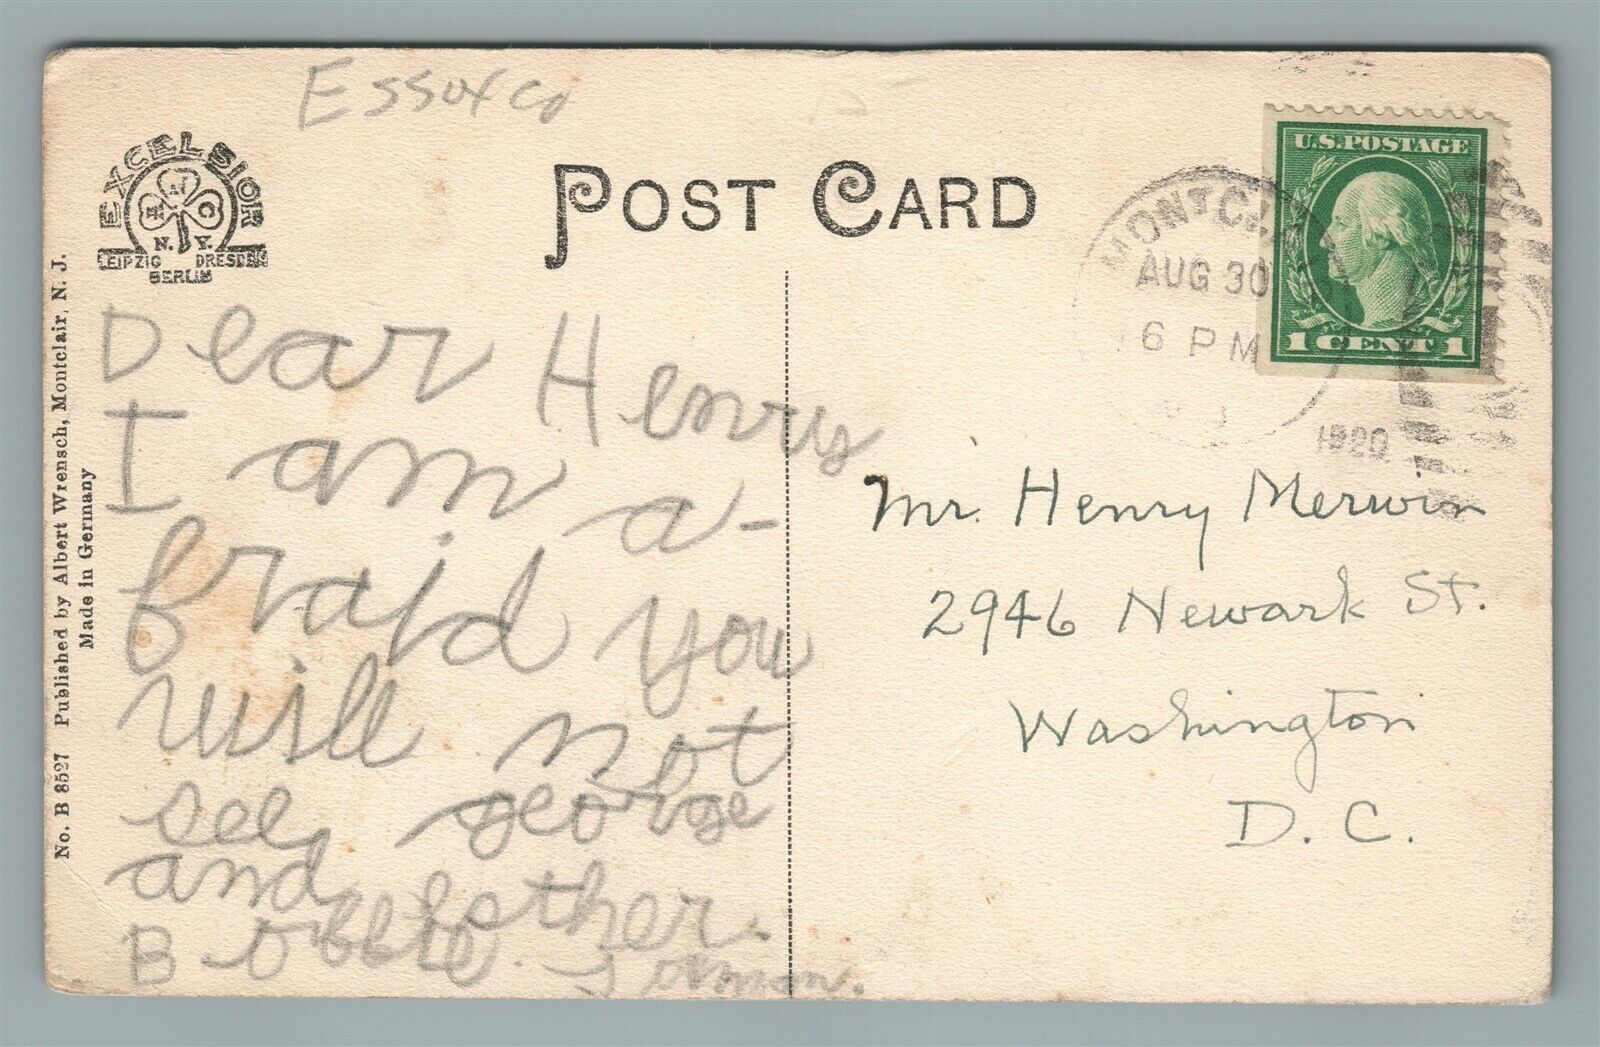 Essex Co
EXCELSIOR
A N C
N. Y.
LEIPZIG DRESDEN
BERLIN
POST CARD
U.S. POSTAGE
1 CENT 1
AUG 30
6 PM
1920
No. B 8527 Published by Albert Wrensch, Montclair, N. J.
Made in Germany
Dear Henry
I am a-
fraid you
will not
see george
and Esther.
Bobbie
Mr. Henry Merwin
2946 Newark St.
Washington
D. C.